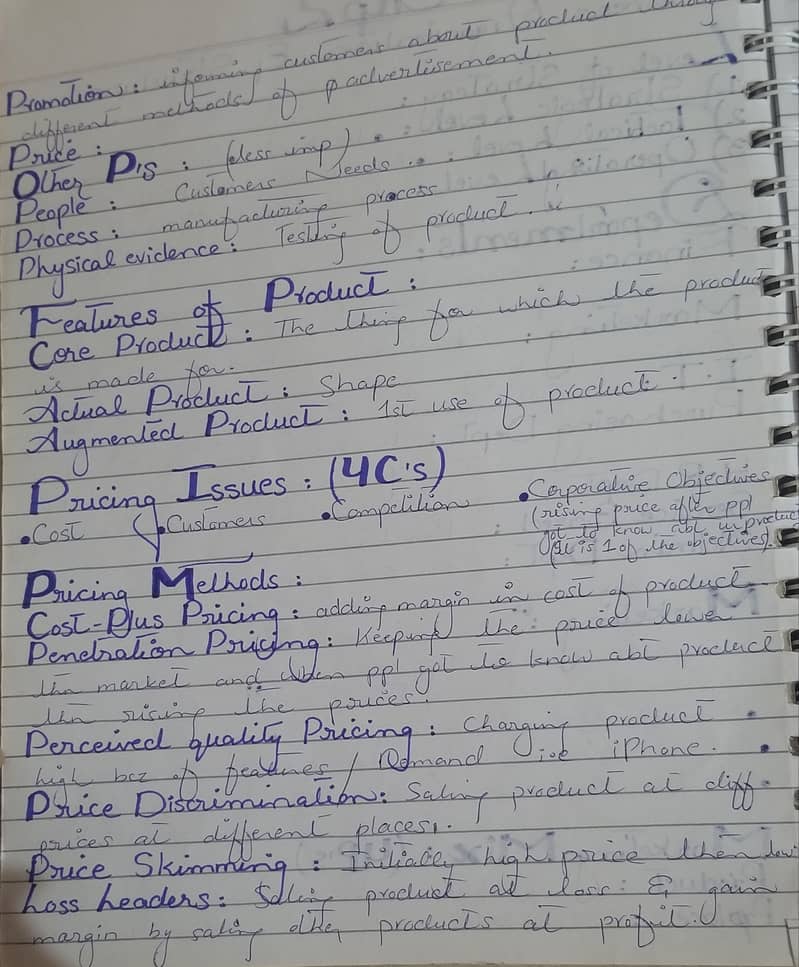 Promotion : informing customers about product
different methods of advertisement.
Price :
Other P's : (less imp)
People : Customers Needs
Process : manufacturing process
Physical evidence : Testing of product.
Features of Product :
Core Product : The thing for which the product
is made for.
Actual Product : Shape
Augmented Product : 1st use of product.
Pricing Issues : (4C's)
•Cost •Customers •Competition •Corporative Objectives
(rising price after ppl
got to know abt product
is 1 of the objectives).
Pricing Methods :
Cost-Plus Pricing : adding margin in cost of product
Penetration Pricing : Keeping the price lower
thn market and when ppl got to know abt product
thn rising the prices.
Perceived quality Pricing : Charging product
high bcz of features / Demand i.e iPhone.
Price Discrimination : Saling product at diff.
prices at different places.
Price Skimming : Initialy high price then low
Loss Leaders : Saling product at loss & gain
margin by saling other products at profit.